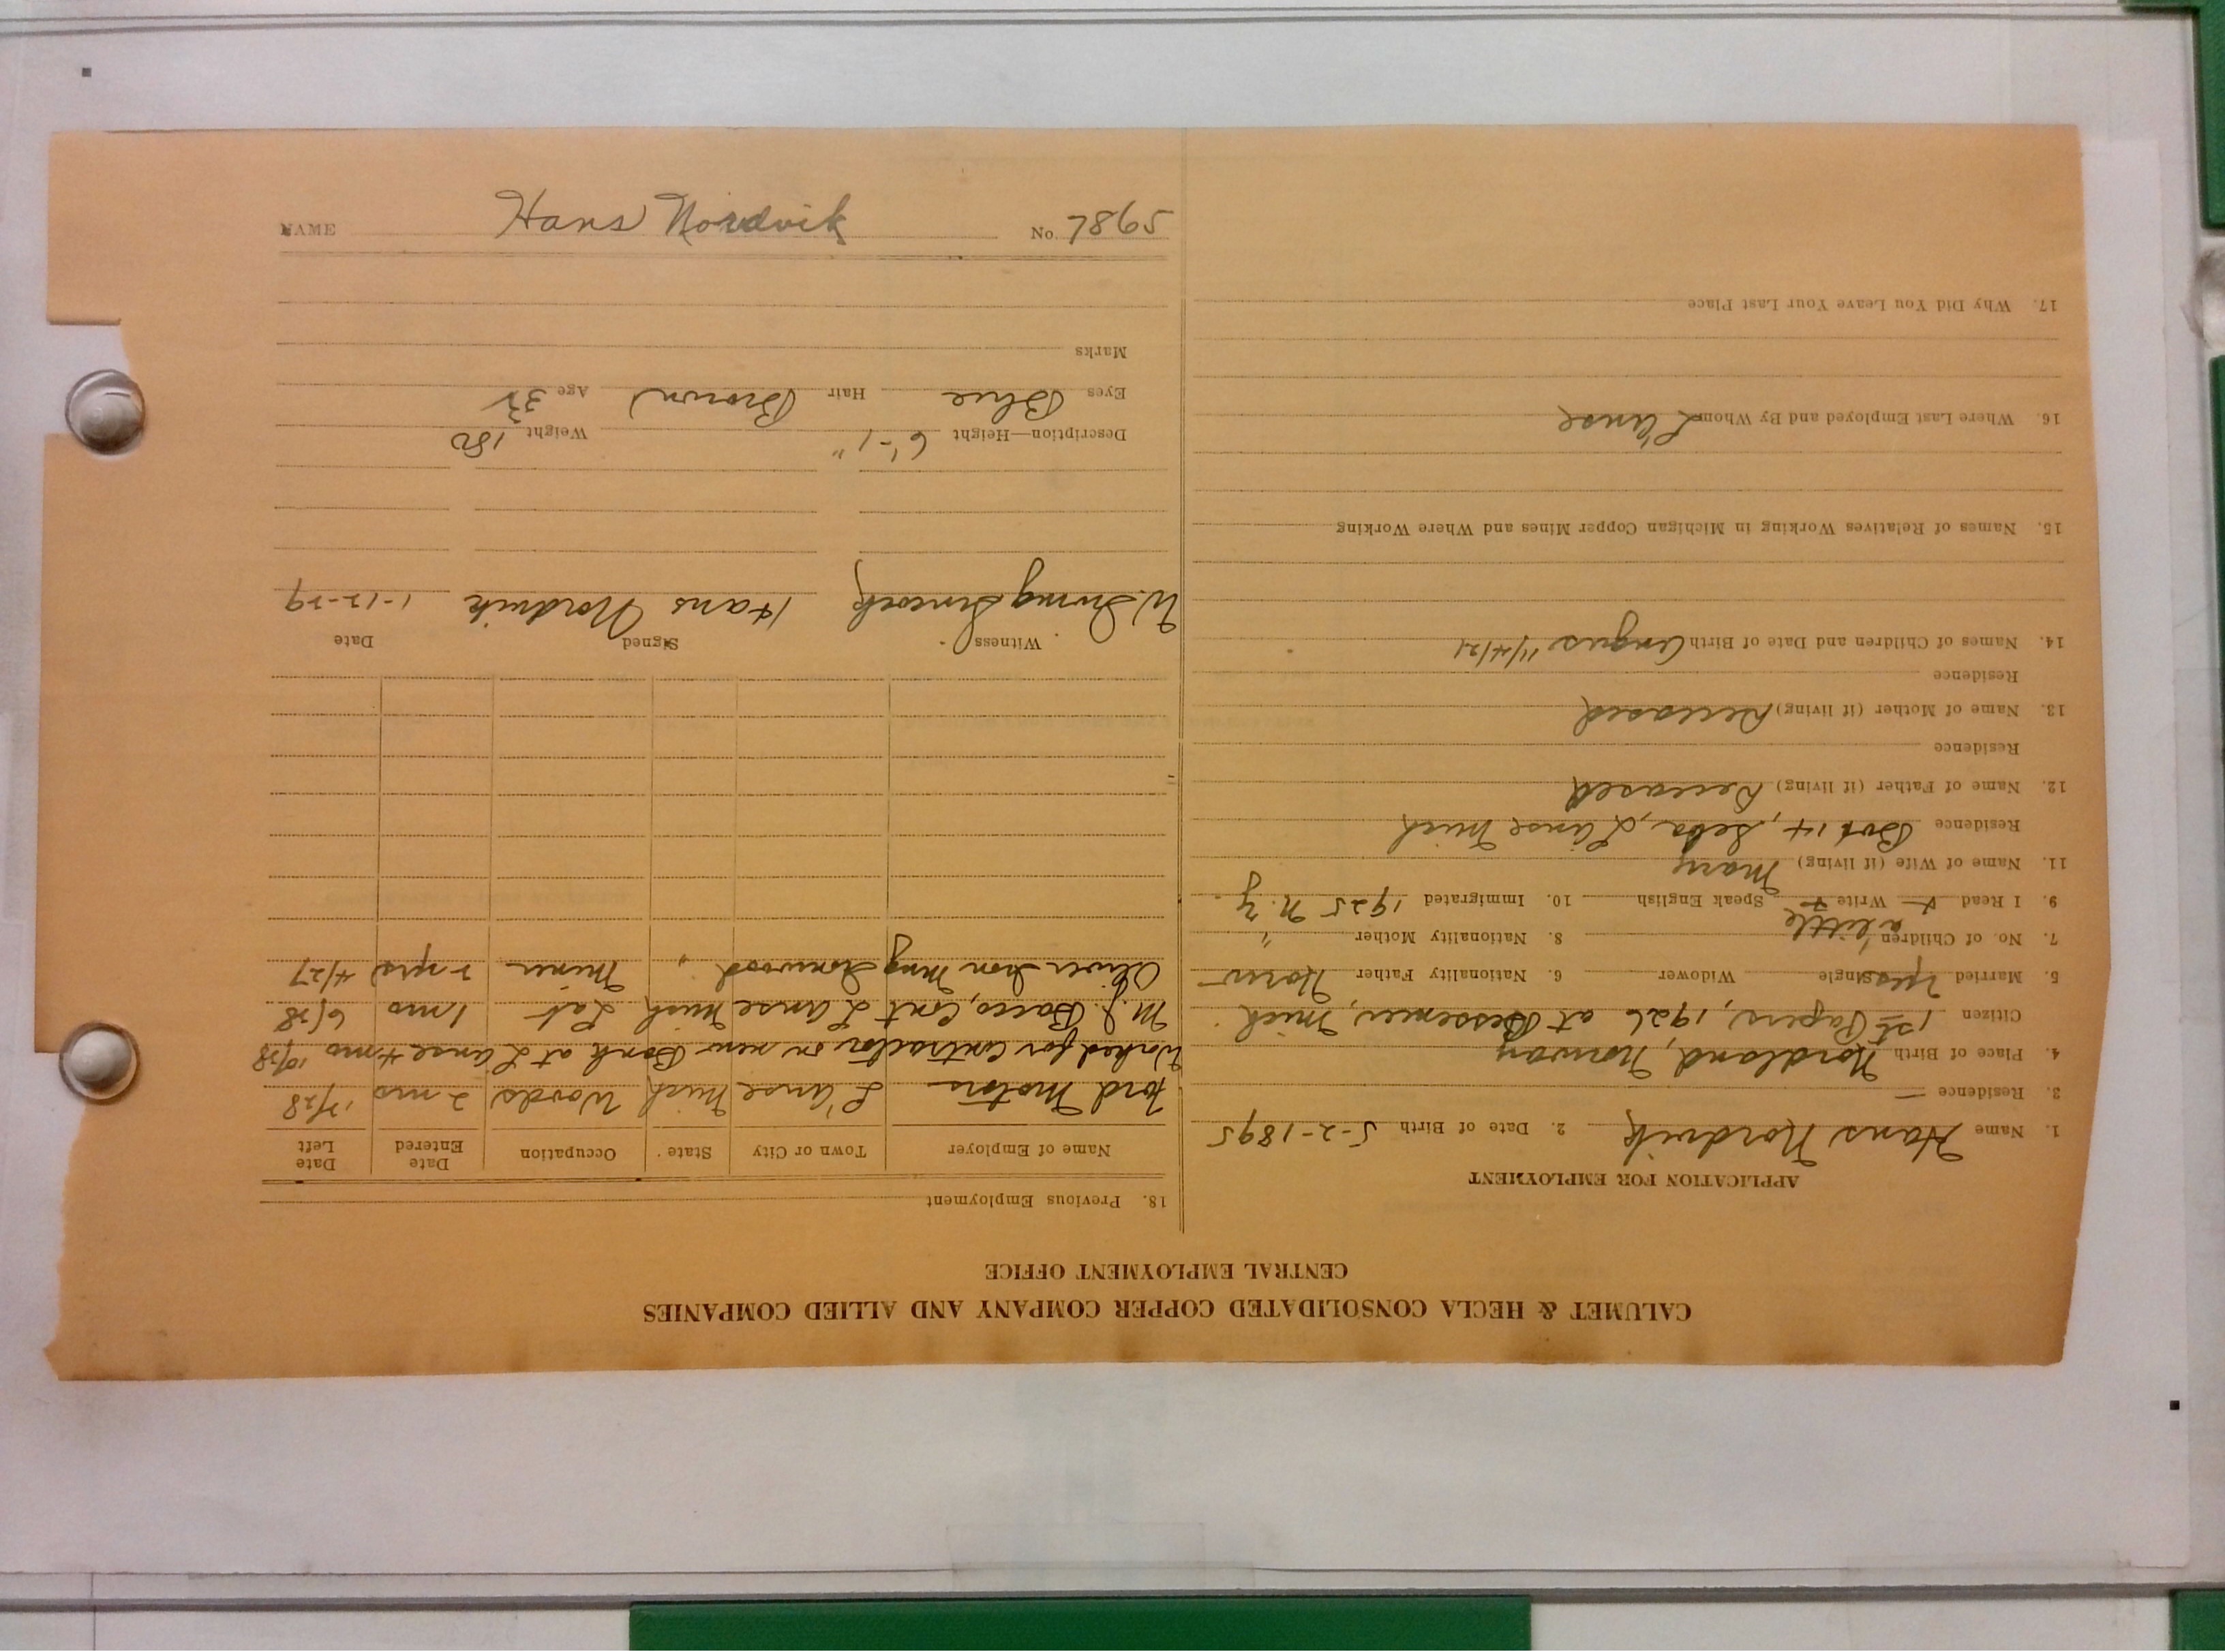 CALUMET & HECLA CONSOLIDATED COPPER COMPANY AND ALLIED COMPANIES
CENTRAL EMPLOYMENT OFFICE
APPLICATION FOR EMPLOYMENT
1. Name Hans Nordvik 2. Date of Birth 5-2-1895
3. Residence —
4. Place of Birth Nordland, Norway
Citizen 1st Papers, 1926 at Bessemer, Mich.
5. Married yes Single Widower 6. Nationality Father Norw
7. No. of Children 8. Nationality Mother "
a little
9. I Read Write Speak English 10. Immigrated 1925 N.Y.
11. Name of Wife (if living) Mary
Residence Box 14, L'anse Mich
12. Name of Father (if living) Deceased
Residence
13. Name of Mother (if living) Deceased
Residence
14. Names of Children and Date of Birth 11/4/21
15. Names of Relatives Working in Michigan Copper Mines and Where Working
16. Where Last Employed and By Whom L'anse
17. Why Did You Leave Your Last Place
18. Previous Employment
Name of Employer Town or City State Occupation Date Entered Date Left
Ford Motors L'anse Mich Woods 2 mos
Worked for Contractor on new Bank at L'anse 4 mo 10/28
M.J. Bacco, Cont L'anse Mich Lab 1 mo 6/28
Oliver Iron Mng Ironwood " Miner 2 yrs 4/27
Witness Signed Date
W. Irving Hans Nordvik 1-12-29
Description—Height 6'-1" Weight 180
Eyes Blue Hair Brown Age 33
Marks
NAME Hans Nordvik No. 78695